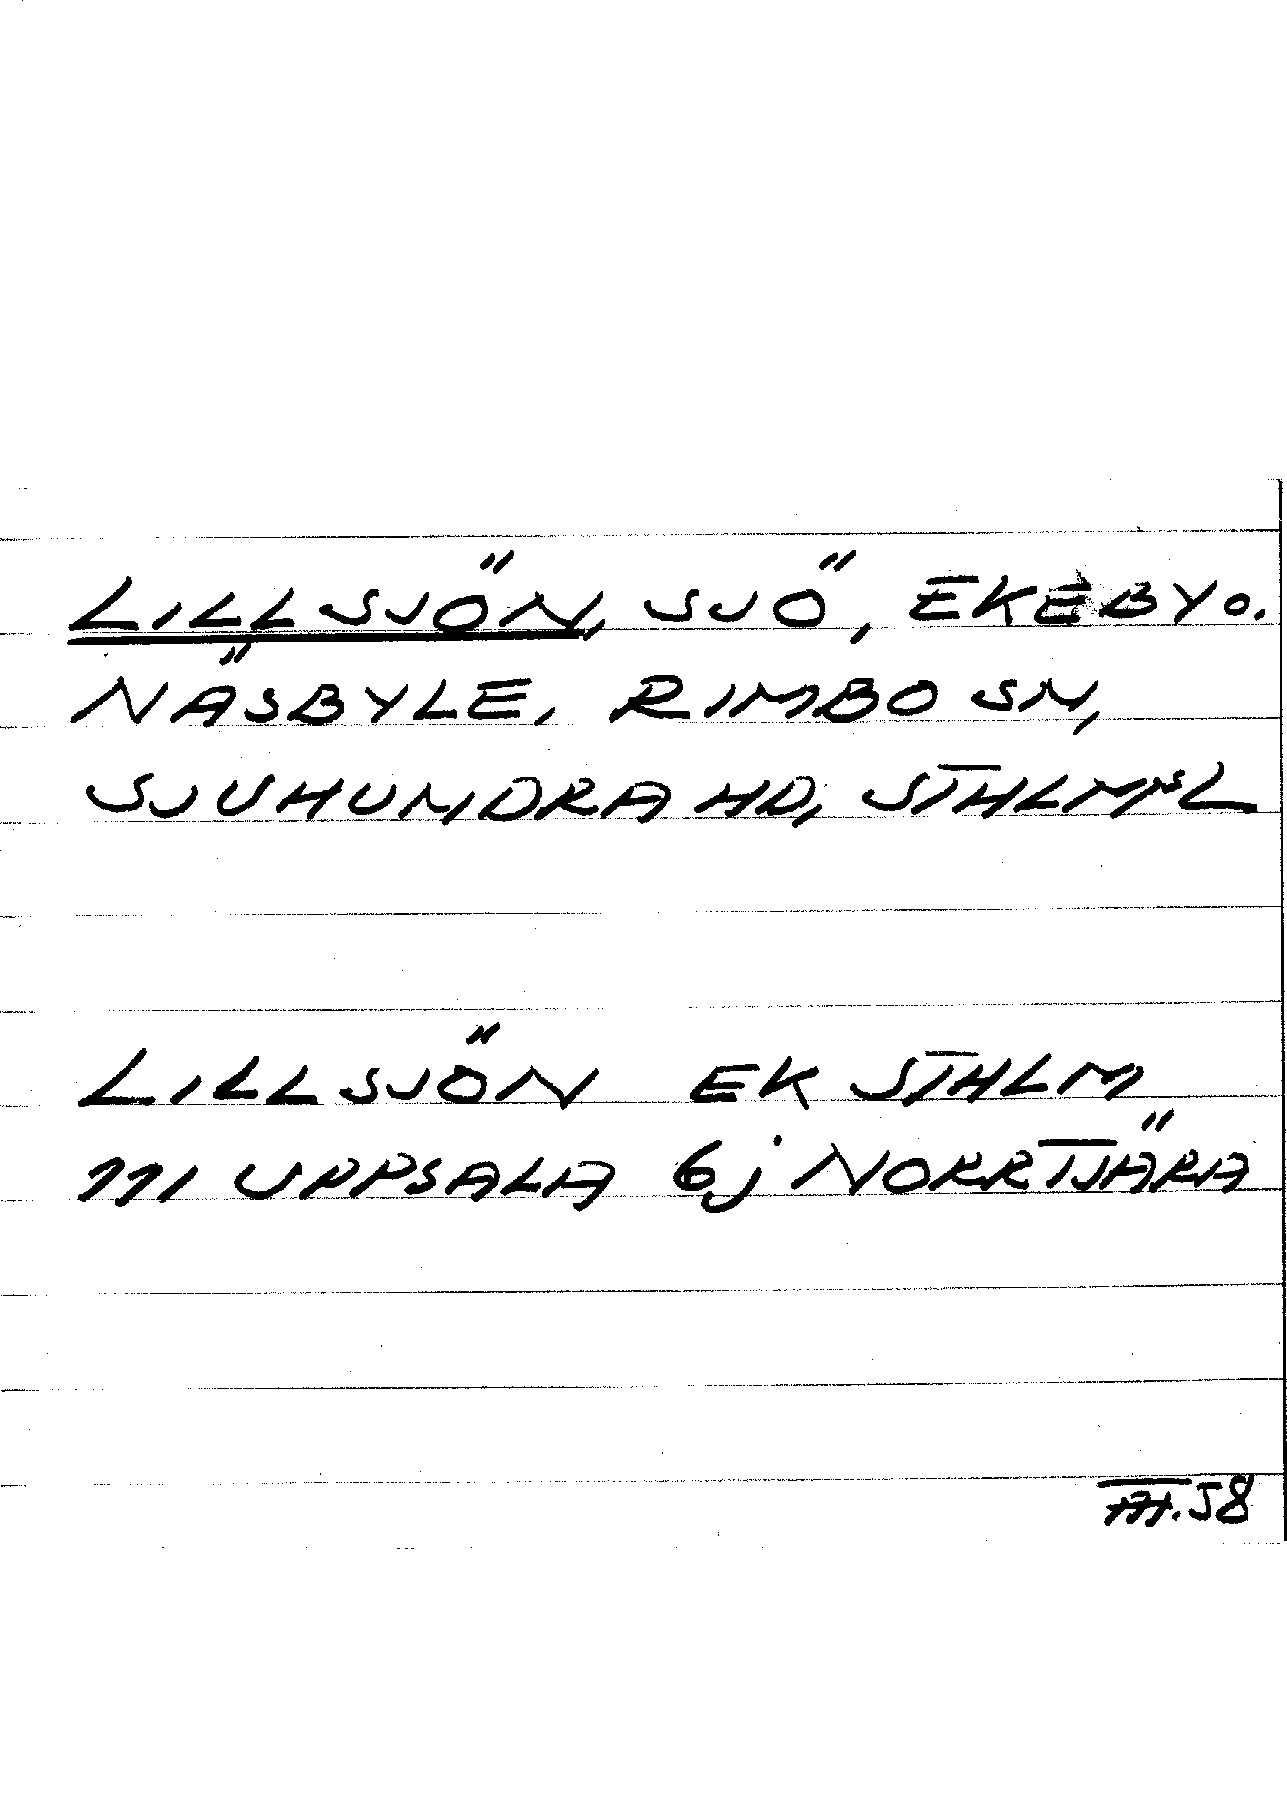 LILLSJÖN, SJÖ, EKEBY O.
NÄSBYLE, RIMBO SN,
SJUHUNDRA HD, STHLMSL
LILLSJÖN EK STHLM
111 UPPSALA 6j NORRTJÄRA